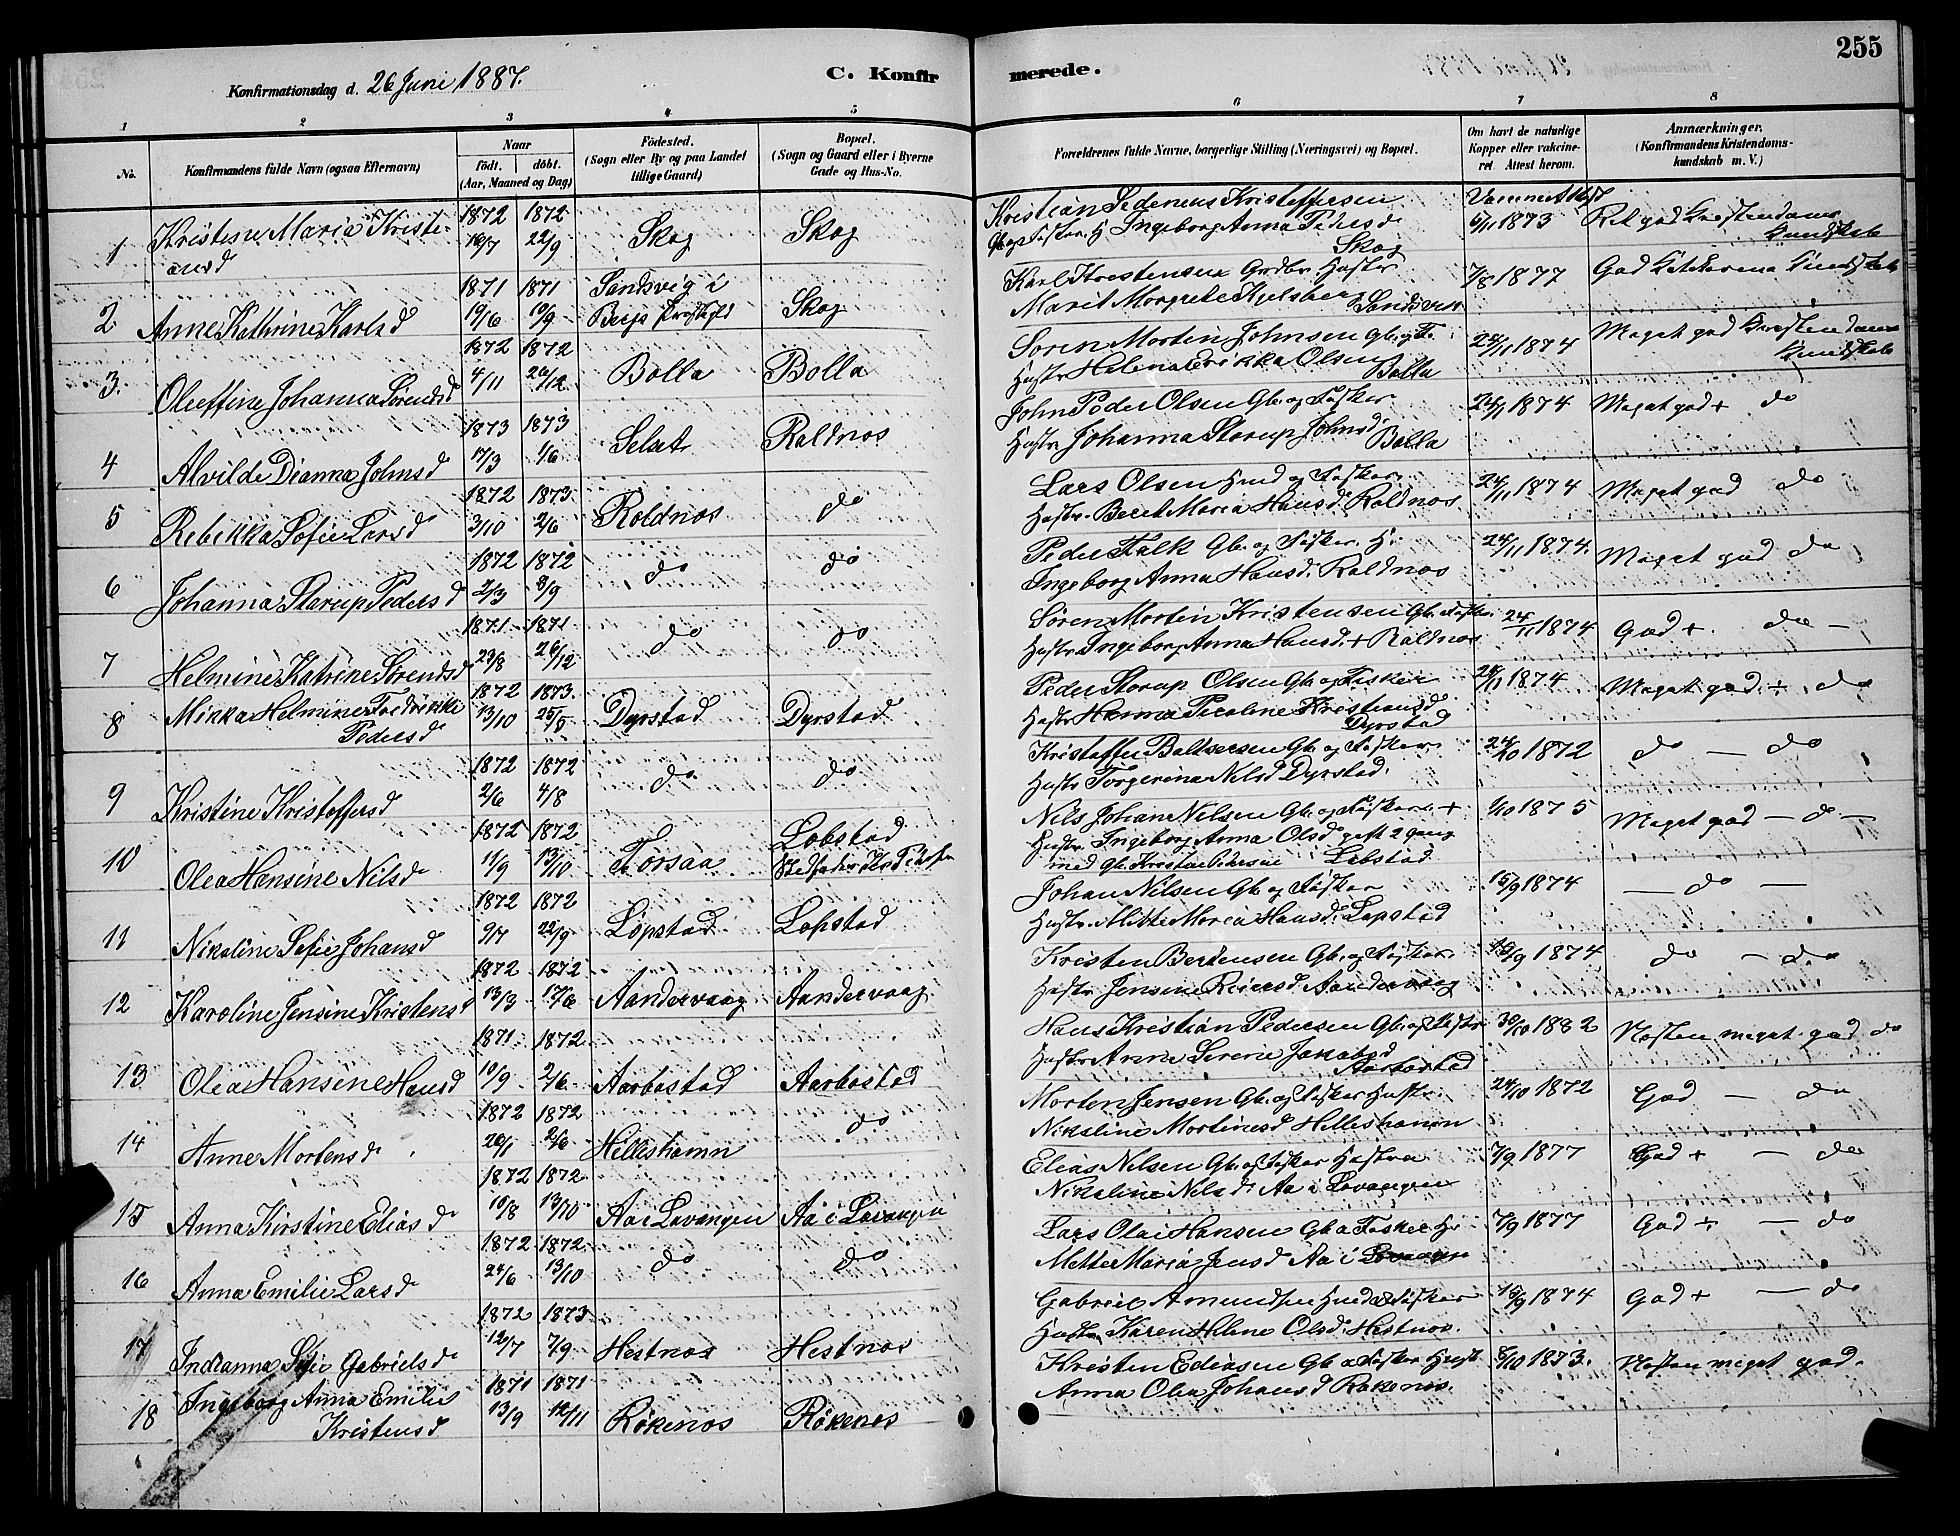 255
Konfirmationsdag d. 26 Juni 1887.
C. Konfirmerede.
1 2 3 4 5 6 7 8
No. Konfirmandens fulde Navn (ogsaa Efternavn) Naar födt. döbt. (Aar, Maaned og Dag) Födested. (Sogn eller By og paa Landet tillige Gaard) Bopæl. (Sogn og Gaard eller i Byerne Gade og Hus-No. Forældrenes fulde Navne, borgerlige Stilling (Næringsvei) og Bopæl. Om havt de naturlige Kopper eller vakcineret. Attest herom. Anmærkninger. (Konfirmandens Kristendomskundskab m. V.)
1 Kristine Maria Kristiansd 1872 16/7 1872 22/9 Skog Skog
Kristian Pedersen Kristoffersen
H. Ingeborg Anna Pedersd Skog
1873 god Kristendoms Kundskab
2 Anne Kathrine Karlsd 1871 19/6 1871 10/9 Sandsvig i Bergs Skog
Karl Kristensen Hustr
Marit Margrete Sandsvig
7/8 1877 God Kundskab
3. Oleffine Johanna Sørensd 1872 4/11 1872 26/12 Bolla Bolla
Søren Morten Johnsen Gb. og F.
Hustr Helena Erikka Olsen Bolla
24/11 1874 Meget god Kristendoms Kundskab
4 Alvilde Dianna Johnsd 1873 17/3 1873 1/6 Selset Roldnos
John Peder Olsen Gb. og Fisker
Hustr Johanna Storup Johnsd Bolla
24/11 1874 Meget god + do
5 Rebekka Sofie Larsd 1872 3/10 1873 2/6 Roldnos do
Lars Olsen Husd og Fisker
Hustr. Berit Maria Hansd. Roldnos
24/11 1874 Meget god do
6 Johanna Starup Pedersd 1872 2/3 1872 8/9 do do
Peder Falk Gb. og Fisker. H.
Ingeborg Anna Hansd. Roldnos
24/11 1874. Meget god do
7 Helmine Katrine Sørensd 1871 23/8 1871 26/12 do do
Søren Morten Kristensen Gb. Fisker
Hustr Ingeborg Anna Hansd. + Roldnos
24/11 1874 God + do —
8 Mikka Helmine Fredrikke Pedersd 1872 13/10 1873. 25/5 Dyrstad Dyrstad
Peder Storup Olsen Gb. og Fisker
Hustr Hanna Nicoline Kristiansd Dyrstad
24/11 1874 Meget god + do
9 Kristine Kristoffersd 1872 2/6 1872 4/8 do do
Kristoffer Baltsersen Gb. og Fisker
Hustr Torgerina Nilsd Dyrstad.
24/10 1872 do — do
10 Olea Hansine Nilsd 1872 11/9 1872 13/10 Forsaa Lobstad
Nils Johan Nilsen Gb. og Fisker +
Hustr. Ingeborg Anna Olsd gift 2 gang
med Gb. Lobstad
1/10 1875 Meget god — do —
11 Nikoline Sofie Johansd 1872 9/7 1872 22/9 Løpstad Lopstad
Johan Nilsen Gb. og Fisker
Hustr. Mitte Maria Hansd. Lopstad
15/9 1874 — do —
12 Karoline Jensine Kristensd 1872 13/3 1872 17/6 Aandervaag Aandervaag
Kristen Bertensen Gb. og Fisker
Hustr Jensine Reiersd Aandervaag
15/9 1874 do — do
13 Olea Hansine Hansd 1871. 10/9 1872 2/6 Aarbostad Aarbostad
Hans Kristian Pedersen Gb. og Fisker
Hustr Anne Serene Jakobsd Aarbostad
30/10 1882 Nesten meget god do
14 Anne Mortensd 1872 26/1 1872 2/6 Hilleshamn do
Morten Jensen Gb. og Fisker Hustr
Nikoline Mortinesd Hilleshamn
24/10 1872 God — do
15 Anna Kirstine Eliasd 1872 10/8 1872 13/10 Aa i Lavangen Aa i Lavangen
Elias Nilsen Gb. og Fisker Hustru
Nikoline Nilsd. Aa i Lavangen
7/9 1877 God + — do
16 Anna Emilie Larsd 1872 24/6 1872 13/10 do do
Lars Olai Hansen Gb. o Fisker H.
Mette Maria Jensd Aa i Lavangen
7/9 1877 God + — do
17 Indianna Sofie Gabrielsd 1872 12/7 1873 7/9 Hestnos Hestnos
Gabriel Amundsen Husd o Fisker
Hustr. Karen Helene Olsd. Hestnos.
15/9 1874 God + — do
18 Ingeborg Anna Emilie Kristensd 1871 13/9 1871 12/11 Røkenos Røkenos
Kristen Ediasen Gb o Fisker Hust
Anna Olea Johansd Røkenos.
8/10 1873. Nesten meget god.